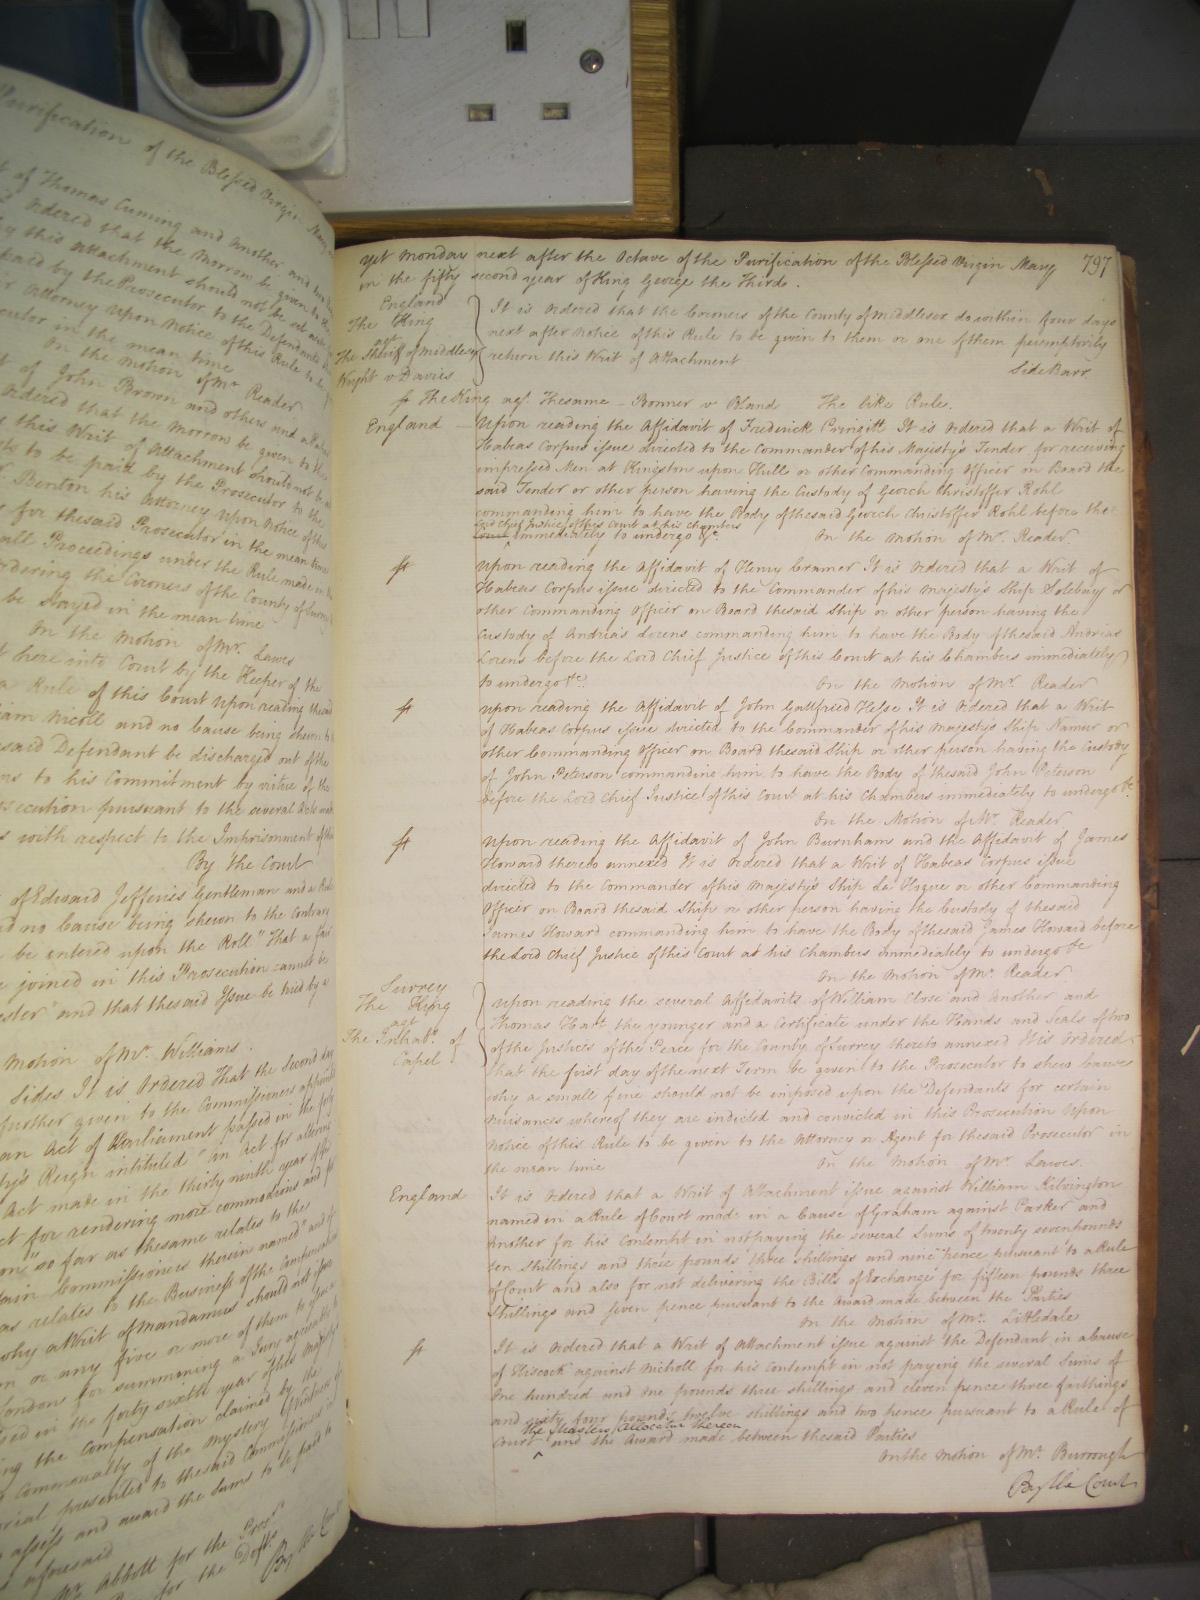 Purification of the Blessed Virgin Mary
of Thomas Cuming and another and
ordered that the morrow be given to the
this attachment should not be set aside
paid by the Prosecutor to the Defendants
Attorney upon Notice of this Rule to be
in the mean time
On the Motion of Mr. Reader
of John Brown and others and a Rule
ordered that the Morrow be given to the
this Writ of Attachment should not be
to be paid by the Prosecutor to the
Benton his Attorney upon Notice of this
for the said Prosecutor in the mean time
all Proceedings under the Rule made in the
ordering the Coroners of the County of Surrey
be stayed in the mean time
On the Motion of Mr. Lawes
here into Court by the Keeper of the
a Rule of this Court upon reading the said
Nicoll and no Cause being shewn to
said Defendant be discharged out of the
to his Commitment by virtue of the
pursuant to the several Acts made
with respect to the Imprisonment of the
By the Court
of Edward Jefferies Gentleman and a Rule
no Cause being shewn to the Contrary
be entered upon the Roll "That a fair
joined in this Prosecution cannot be
and that the said Issue be tried by a
Motion of Mr. Williams
Sides It is Ordered That the Second day
further given to the Commissioners appointed
an Act of Parliament passed in the forty
Reign intituled "an Act for altering
Act made in the thirty ninth year of the
for rendering more commodious and for
so far as the same relates to the
Commissioners therein named" and of
as relates to the Business of the Compensation
why a Writ of Mandamus should not issue
or any five or more of them to issue a
London for summoning a Jury agreeable to
in the forty sixth year of His Majesty's
the Compensation claimed by the
Commonalty of the Mystery of
presented to the said Commissioners
assess and award the Sums to be paid to
aforesaid
Mr. Abbott for the Pros.
for the Defts.
By the Court
yet Monday next after the Octave of the Purification of the Blessed Virgin Mary 797
in the fifty second year of King George the Third.
England
The King
agt
The Sheriff of Middlesex
Wright v Davies
It is Ordered that the Coroners of the County of Middlesex do within four days
next after notice of this Rule to be given to them or one of them peremptorily
return this Writ of Attachment
Side Barr
The King agt. The same — Bonner v Bland The like Rule.
England Upon reading the Affidavit of Frederick It is Ordered that a Writ of
Habeas Corpus issue directed to the Commander of his Majesty's Tender for receiving
impressed Men at Kingston upon Hull or other Commanding Officer on Board the
said Tender or other person having the Custody of Georch Christoffer Rohl
commanding him to have the Body of the said Georch Christoffer Rohl before the
Lord Chief Justice of this Court at his Chambers
Court immediately to undergo &c. On the Motion of Mr. Reader
Upon reading the Affidavit of Henry Cramer It is Ordered that a Writ of
Habeas Corpus issue directed to the Commander of his Majesty's Ship Solebay or
other Commanding Officer on Board the said Ship or other person having the
Custody of Andrias Lorens commanding him to have the Body of the said Andrias
Lorens before the Lord Chief Justice of this Court at his Chambers immediately
to undergo &c. On the Motion of Mr. Reader
Upon reading the Affidavit of John Gattfried Hesse It is Ordered that a Writ
of Habeas Corpus issue directed to the Commander of his Majesty's Ship Namur or
other Commanding Officer on Board the said Ship or other person having the Custody
of John Peterson commanding him to have the Body of the said John Peterson
before the Lord Chief Justice of this Court at his Chambers immediately to undergo &c.
On the Motion of Mr. Reader
Upon reading the Affidavit of John Burnham and the Affidavit of James
Howard thereto annexed It is Ordered that a Writ of Habeas Corpus issue
directed to the Commander of his Majesty's Ship La Hogue or other Commanding
Officer on Board the said Ship or other person having the Custody of the said
James Howard commanding him to have the Body of the said James Howard before
the Lord Chief Justice of this Court at his Chambers immediately to undergo &c
On the Motion of Mr. Reader
Surrey
The King
agt
The Inhabts. of
Capel
Upon reading the several Affidavits of William Close and Another and
Thomas Hart the younger and a Certificate under the Hands and Seals of two
of the Justices of the Peace for the County of Surrey thereto annexed It is Ordered
that the first day of the next Term be given to the Prosecutor to shew Cause
why a small fine should not be imposed upon the Defendants for certain
Nuisances whereof they are indicted and convicted in this Prosecution Upon
Notice of this Rule to be given to the Attorney or Agent for the said Prosecutor in
the mean time On the Motion of Mr. Lawes.
England It is Ordered that a Writ of Attachment issue against William Kilvington
named in a Rule of Court made in a Cause of Graham against Parker and
Another for his Contempt in not paying the several Sums of twenty seven pounds
ten shillings and three pounds three shillings and nine pence pursuant to a Rule
of Court and also for not delivering the Bills of Exchange for fifteen pounds three
Shillings and seven pence pursuant to the Award made between the Parties
On the Motion of Mr. Littledale
It is Ordered that a Writ of Attachment issue against the Defendant in a Cause
of Eliscock against Nicholl for his Contempt in not paying the several Sums of
One hundred and one pounds three shillings and eleven pence three farthings
and sixty four pounds twelve shillings and two pence pursuant to a Rule of
the Masters Allocatur thereon
Court and the Award made between the said Parties
On the Motion of Mr. Burrough
By the Court